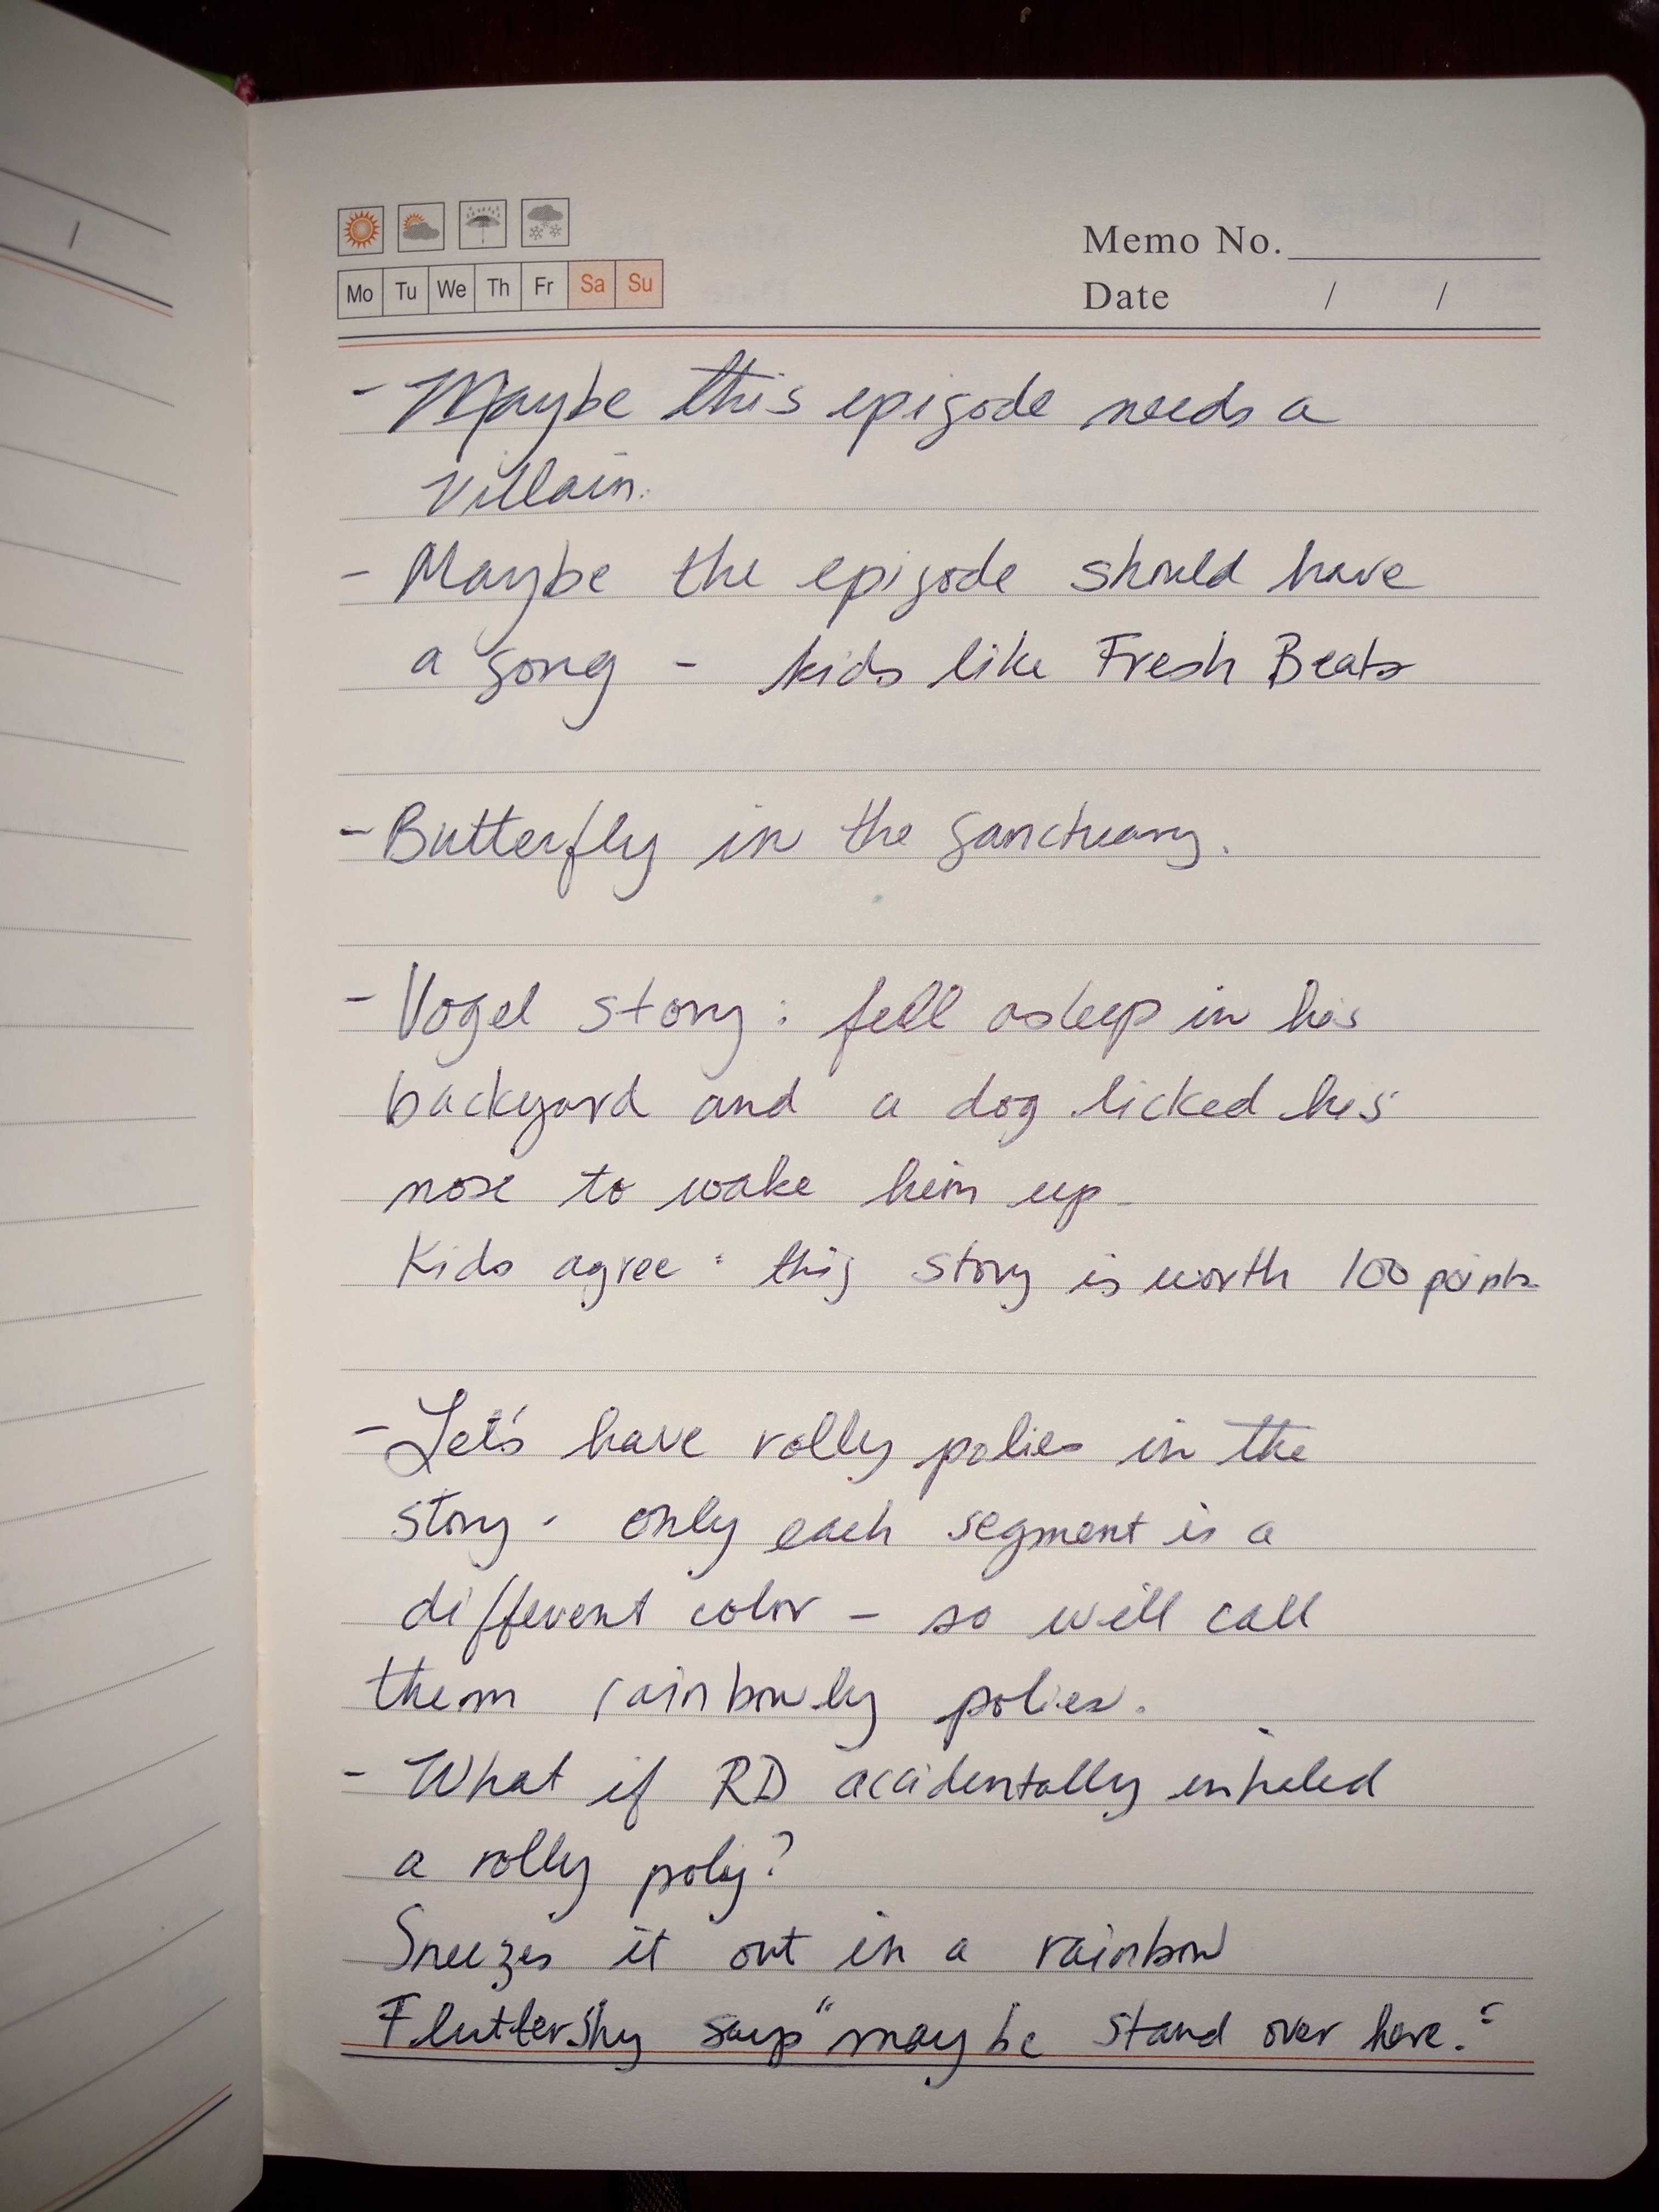 Memo No.
Mo Tu We Th Fr Sa Su
Date / /
- Maybe this episode needs a
villain.
- Maybe the episode should have
a song - kids like Fresh Beats
- Butterfly in the sanctuary.
- Vogel story: fell asleep in his
backyard and a dog licked his
nose to wake him up.
Kids agree: this story is worth 100 points
- Let's have rolly polies in the
story - only each segment is a
different color - so will call
them rainbowly polies.
- What if RD accidentally inhaled
a rolly poly?
Sneezes it out in a rainbow
Fluttershy says "maybe stand over here."